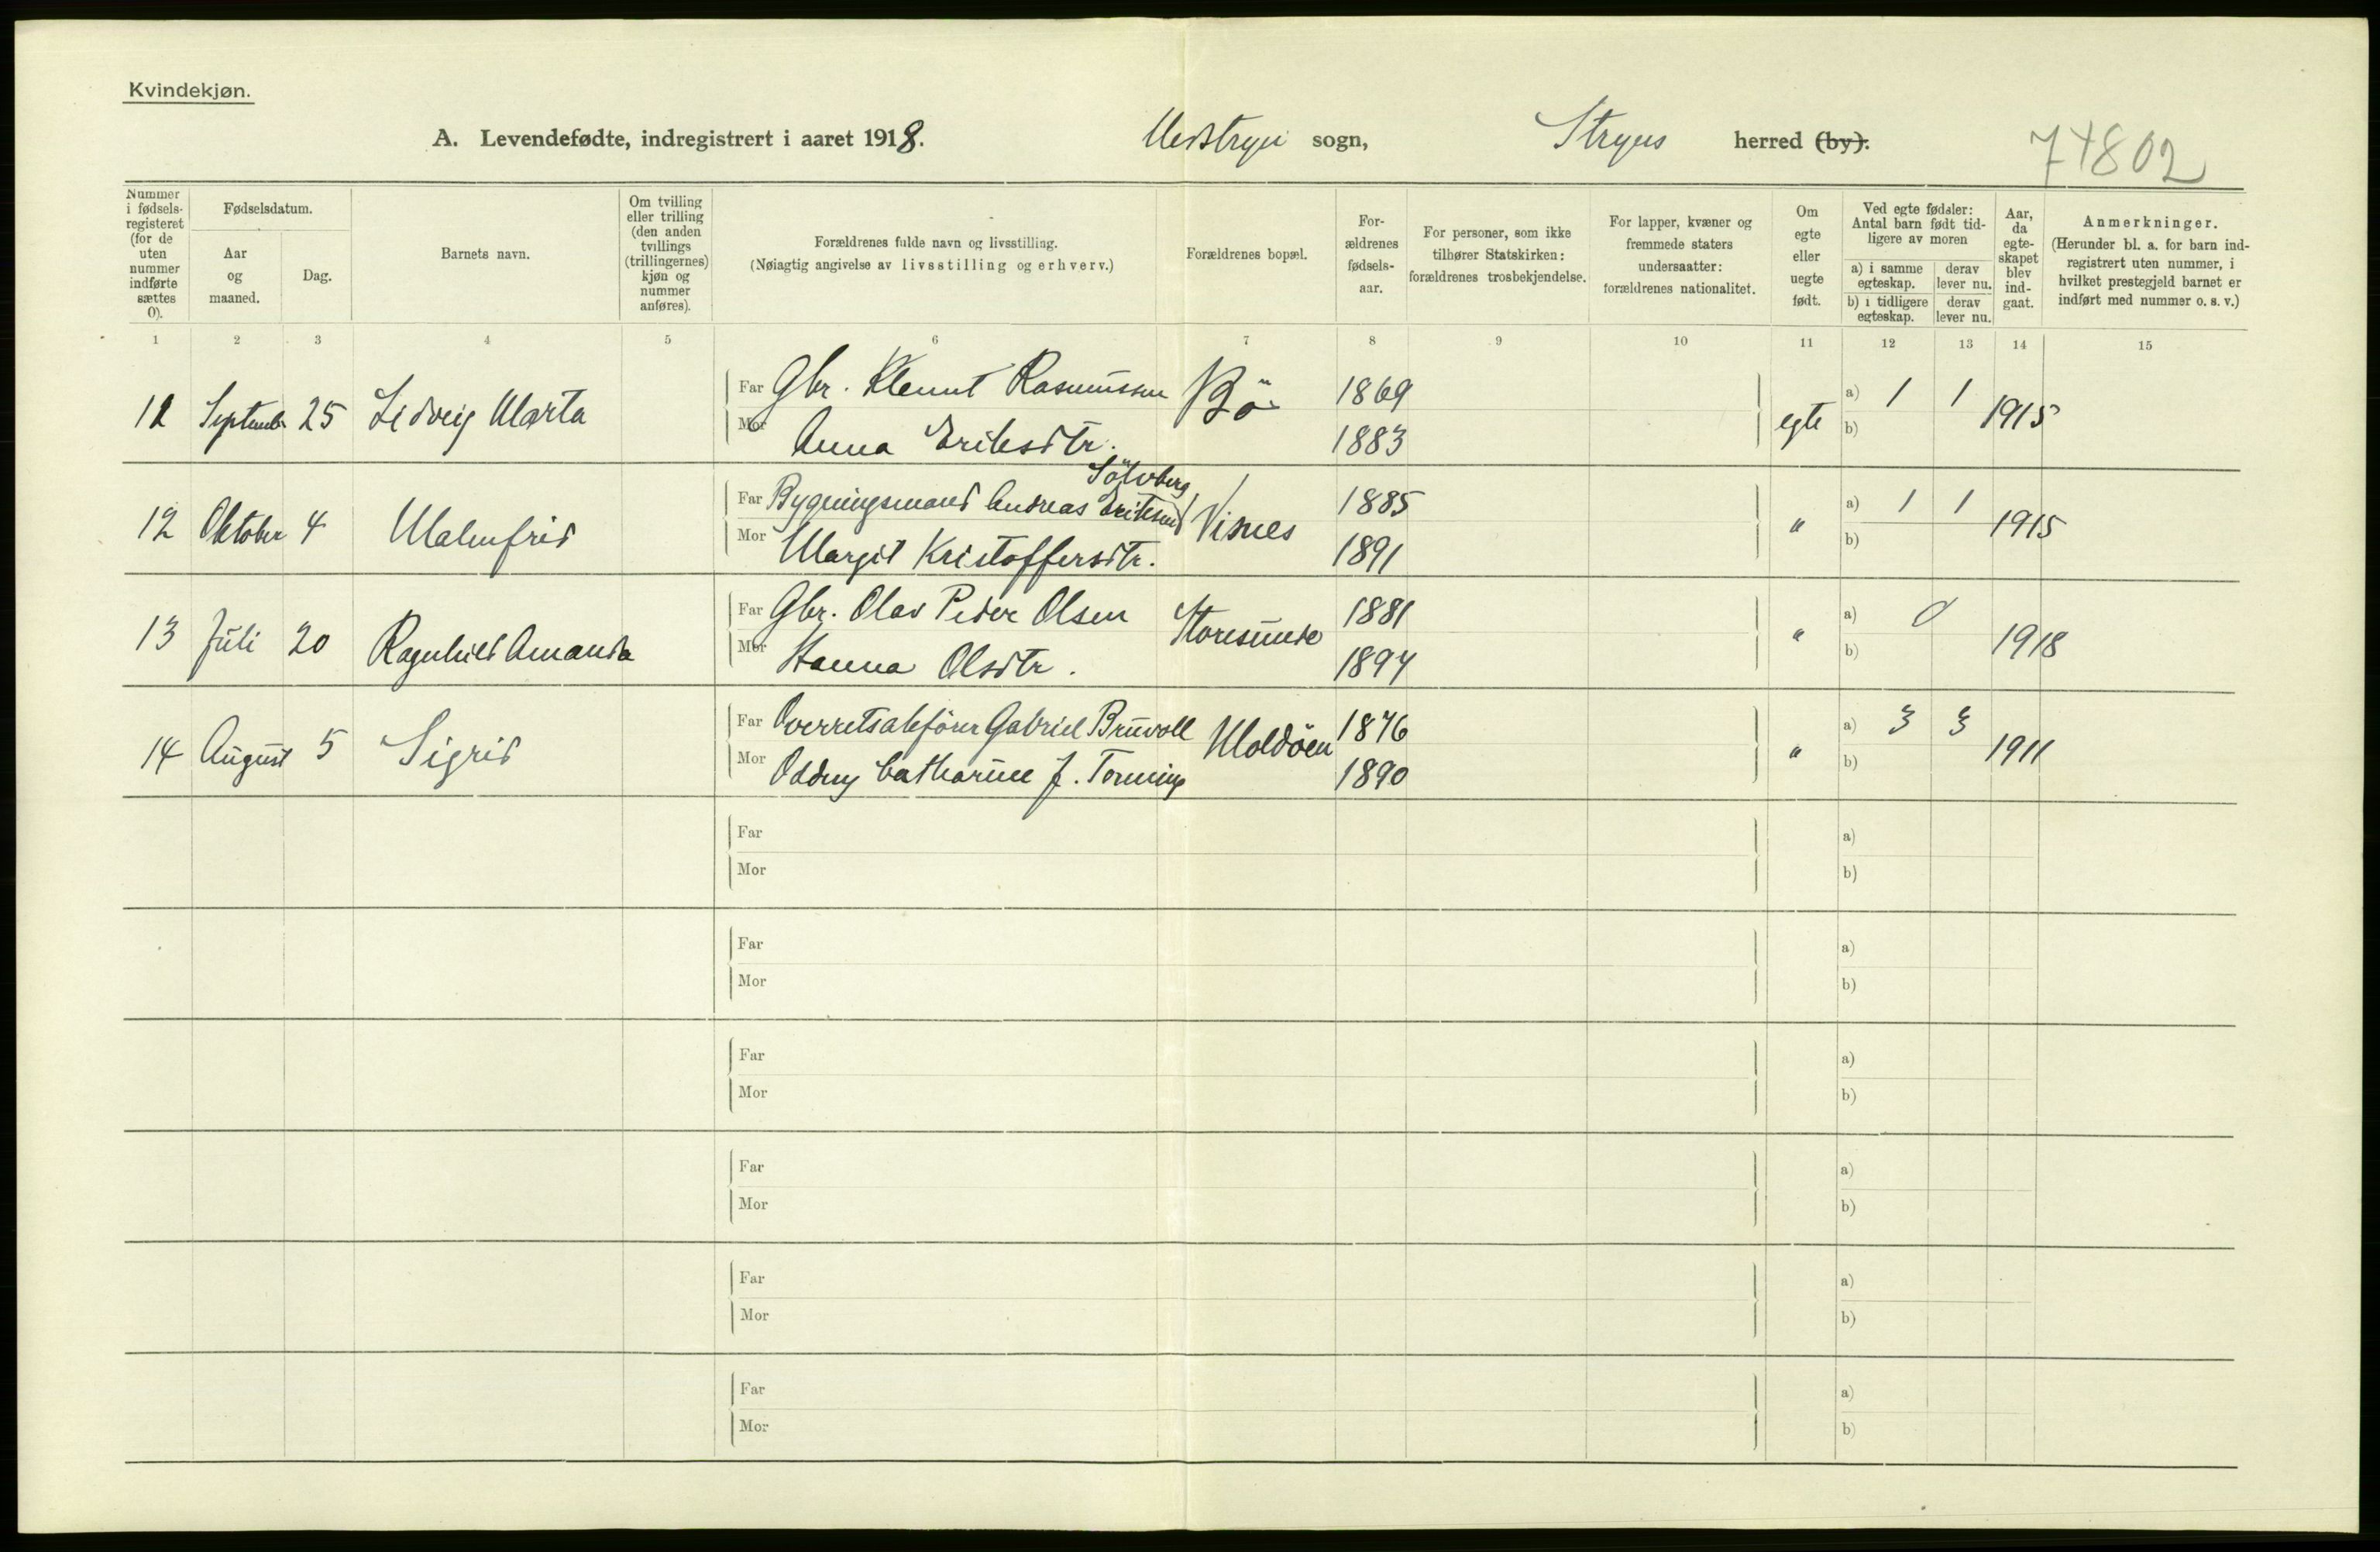 Kvindekjøn.
A. Levendefødte, indregistrert i aaret 1918. Nedstryn sogn, Stryns herred (by).
74802
Nummer i fødsels-registeret (for de uten nummer indførte sættes 0).
Fødselsdatum.
Aar og maaned.
Dag.
Barnets navn.
Om tvilling eller trilling (den anden tvillings (trillingernes) kjøn og nummer anføres).
Forældrenes fulde navn og livsstilling.
(Nøiagtig angivelse av livsstilling og erhverv.)
Forældrenes bopæl.
For-ældrenes fødsels-aar.
For personer, som ikke tilhører Statskirken: forældrenes trosbekjendelse.
For lapper, kvæner og fremmede staters undersaatter: forældrenes nationalitet.
Om egte eller uegte født.
Ved egte fødsler: Antal barn født tid-ligere av moren
a) i samme egteskap. derav lever nu.
b) i tidligere egteskap. derav lever nu.
Aar, da egte-skapet blev ind-gaat.
Anmerkninger.
(Herunder bl. a. for barn ind-registrert uten nummer, i hvilket prestegjeld barnet er indført med nummer o. s. v.)
1 2 3 4 5 6 7 8 9 10 11 12 13 14 15
Far Gbr. Klemt Rasmussen Bö 1869 a) 1 1
11 Septemb. 25 Lidveig Marta egte 1915
Mor Anna Eriksdtr. 1883 b)
Sölvberg
Far Bygningsmand Andreas Eriksen 1885 a) 1 1
12 Oktober 4 Malmfrid Visnes " 1915
Mor Margit Kristoffersdtr. 1891 b)
Far Gbr. Olav Peder Olsen 1881 a) 0
13 Juli 20 Ragnhild Amanda Storesunde " 1918
Mor Hanna Olsdtr. 1894 b)
Far Overretsakförer Gabriel Bruvoll 1876 a) 3 3
14 August 5 Sigrid Moldöen " 1911
Mor Oddny Catharine J. Tonning 1890 b)
Far a)
Mor b)
Far a)
Mor b)
Far a)
Mor b)
Far a)
Mor b)
Far a)
Mor b)
Far a)
Mor b)